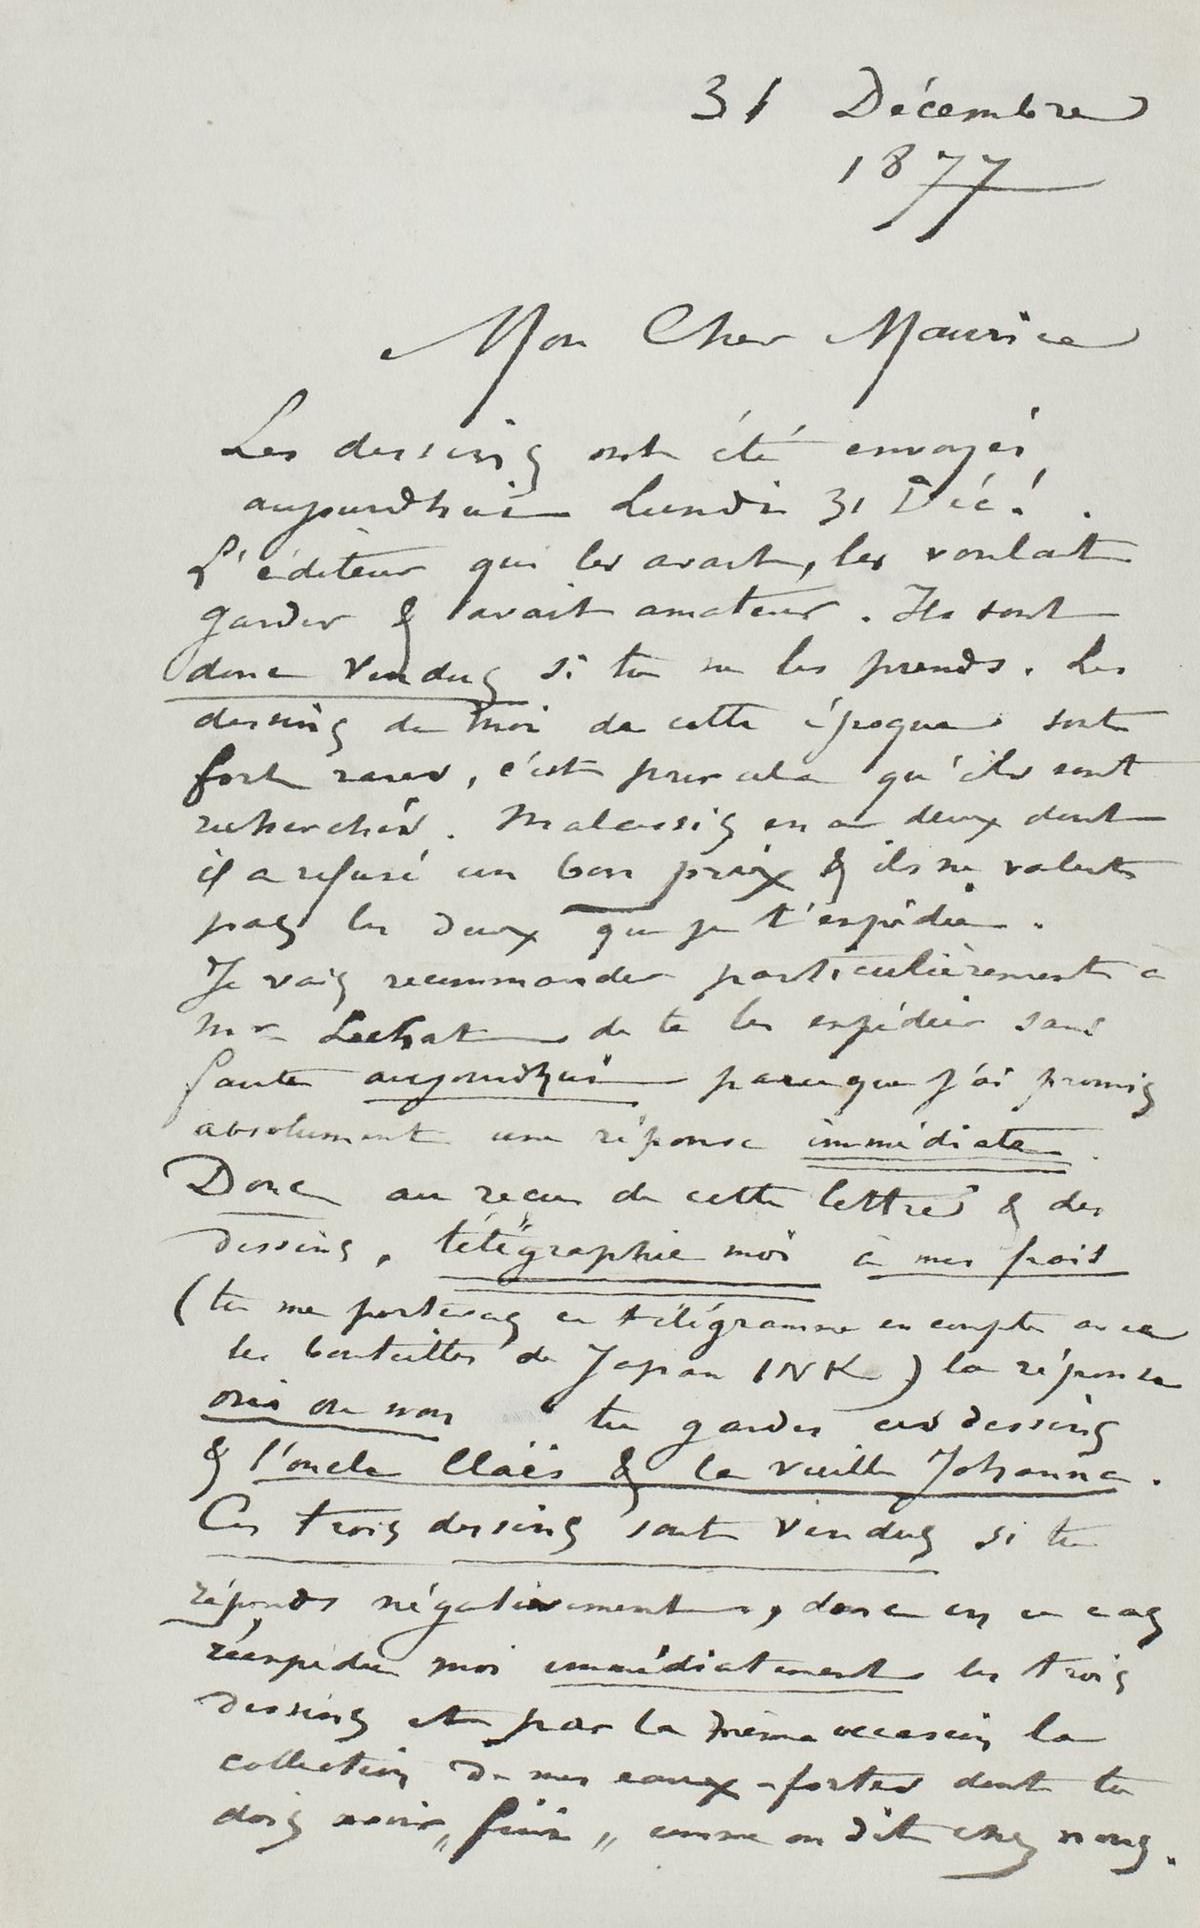 31 Décembre
1877
Mon Cher Maurice
Les dessins ont été envoyés
aujourdhui Lundi 31 Déc!.
L'éditeur qui les avait, les voulait
garder & avait amateur. Ils sont
donc vendus si tu ne les prends. Les
dessins de moi de cette époque sont
fort rares, c'est pour cela qu'ils sont
recherchés. Malassis en a deux dont
il a refusé un bon prix & ils ne valent
pas les deux que je t'expédie.
Je vais recommander particulièrement à
Mr Lechat de te les expédier sans
faute aujourdhui parceque j'ai promis
absolument une réponse immédiate.
Donc au reçu de cette lettre & des
dessins, télégraphie moi à mes frais
(tu me porteras ce télégramme en compte avec
les bouteilles de Japan INK) la réponse
oui ou non tu gardes ces dessins
& l'oncle Claës & la vieille Johanna.
Ces trois dessins sont vendus si tu
réponds négativement, donc en ce cas
réexpédie moi immédiatement les trois
dessins et par la même occasion la
collection de mes eaux-fortes dont tu
dois avoir comme on dit chez nous.